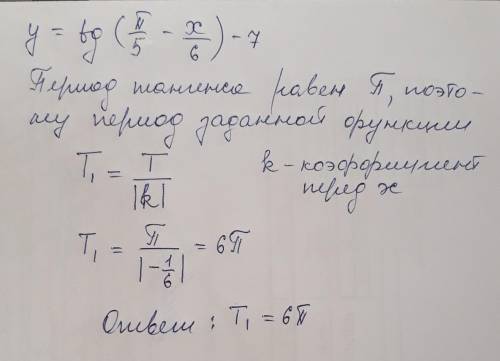 y = tg (π/5 - x/6) - 7
Период тангенса равен П, поэто-
му период заданной функции
T₁ = T/|k| k - коэффициент
перед x
T₁ = П/|-1/6| = 6П
Ответ: T₁ = 6П